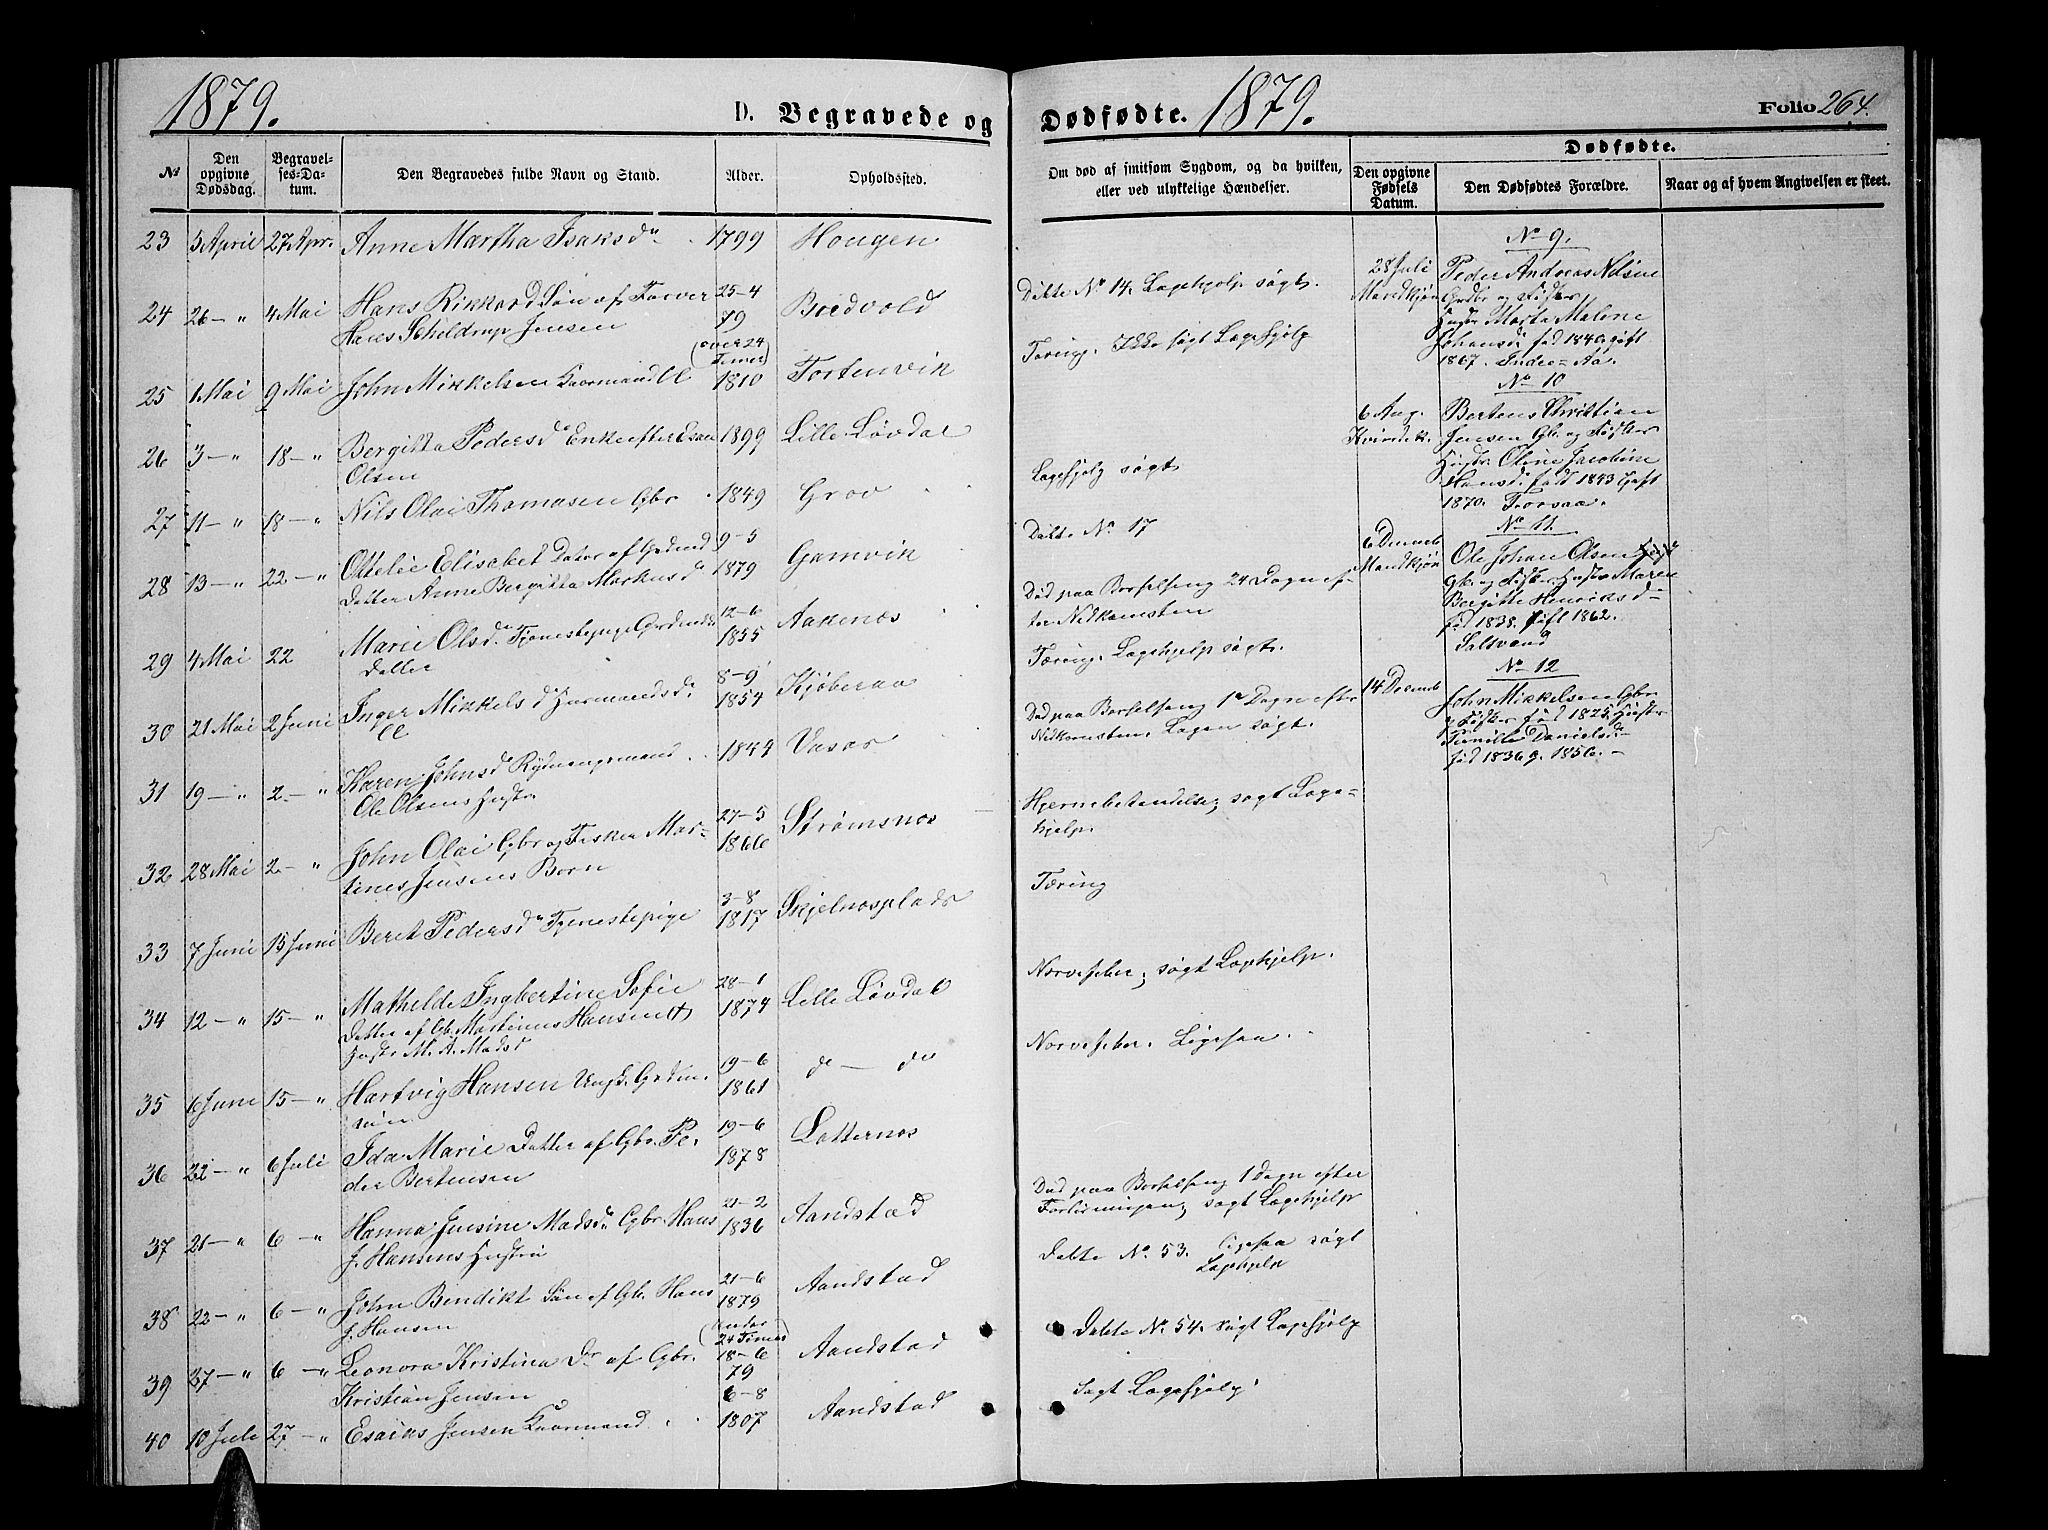 1879.
D. Begravede og
Dødfødte. 1879.
Folio 264.
№
Den opgivne Dødsdag.
Begravelses-Datum.
Den Begravedes fulde Navn og Stand.
Alder.
Opholdssted.
Om død af smitsom Sygdom, og da hvilken,
eller ved ulykkelige Hændelser.
Dødfødte.
Den opgivne Fødsels Datum.
Den Dødfødtes Forældre.
Naar og af hvem Angivelsen er skeet.
23 5 April 27 Apr. Anne Martha Isaksdr 1799 Hougen
24 26 – " 4 Mai Hans Rikkard Søn af Farver 25–4 79 Bredvold
Hans Scheldrup Jensen (over 24 Timer)
25 1 Mai 9 Mai John Mikkelsen Kaarmand 1810 Tortenvik
26 3 – " 18 – " Bergitta Pedersdr Enke efter Esau 1899 Lille Løvdal
Olsen
27 11 – " 18 – " Nils Olai Thomasen Gbr 1849 Grov
28 13 – " 22 – " Ottelie Elisabet Datter af Grdmd 9–5 1879 Gamvik
Datter Anne Bergitta Markusdr
29 4 Mai 22 Marie Olsdr Tjenestepige Grdmds 12–6 1855 Aakenes
Datter
30 21 Mai 2 Juni Inger Mikkelsdr 8–9 1854 Kjøberaa
31 19 – " 2 – " Karen Johnsdr Rydningsmand 1844 Vasas
Ole Olsens Hustr
32 28 Mai 2 – " John Olai Gbr og Fisker Mar- 27–5 1866 Strømsnes
tines Jensens Barn
33 7 Juni 15 Juni Beret Pedersdr Tjenestepige 3–8 1817 Skjelnesplads
34 12 – " 15 – " Mathilde Ingbertine Sofie 28–1 1874 Lille Løvdal
Datter af Gb. Martinus Hansen &
Hustr M. A. Madsd
35 6 Juni 15 – " Hartvig Hansen Ungk. Grdm. 19–6 1861 do – do
søn
36 22 – " 6 Juli Ida Marie Datter af Gbr. Pe- 19–6 1878 Latternes
der Bertensen
37 21 – " 6 – " Hanna Jensine Madsdr Gbr. Hans 21–2 1836 Aandstad
J. Hansens Hustru
38 22 – " 6 – " John Bendikt Søn af Gb. Hans 21–6 1879 Aandstad
J. Hansen (under 24 Timer)
39 27 – " 6 – " Leonora Kristina Dr af Gbr. 18–6 79 Aandstad
Kristian Jensen
40 10 Juli 27 – " Esaiks Jensen Kaarmand 6–8 1807 Aandstad
Dabte No 14. Lægehjelp søgt.
Tæring. Ikke søgt Lægehjelp
Lægehjelp søgt
Dabte No 17
Død paa Barselseng 24 Dagn ef-
ter Nedkomsten
Tæring. Lægehjelp søgt.
Død paa Barselseng 1 Dagn efter
Nedkomsten. Lægen søgt.
Hjernebetændelse; søgt Læge-
hjelp.
Tæring
Nervefeber; søgt Lægehjelp.
Nervefeber. Ligesaa.
Død paa Barselseng 1 Dagn efter
Forløsningen; søgt Lægehjelp
Dabte No. 53. Ligesaa søgt
Lægehjelp
Dabte No. 54. søgt Lægehjelp
Søgt Lægehjelp
No 9.
28 Juli Peder Andreas Nilsen
Mandkjøn Grdbr og Fisker
Hustr Marta Malene
Johansdr. fød 1840. gift
1867. Indre-Aa.
No 10
6 Aug. Bertens Christian
Kvindek. Jensen Gb. og Fisker
Hustr. Oline Jacobine
Hansdr. født 1843 Gift
1870. Torsaa.
No 11.
6 Decemb Ole Johan Olsen
Mandkjøn Gb. og Fisker Hustr Maren
Bergitte Henriksdr
fød 1838. gift 1862.
Saltvand
No 12
14 Decemb John Mikkelsen Gbr.
& Fisker fød 1825. Hustr
Pernille Danielsdr
fød 1836 g. 1856. –